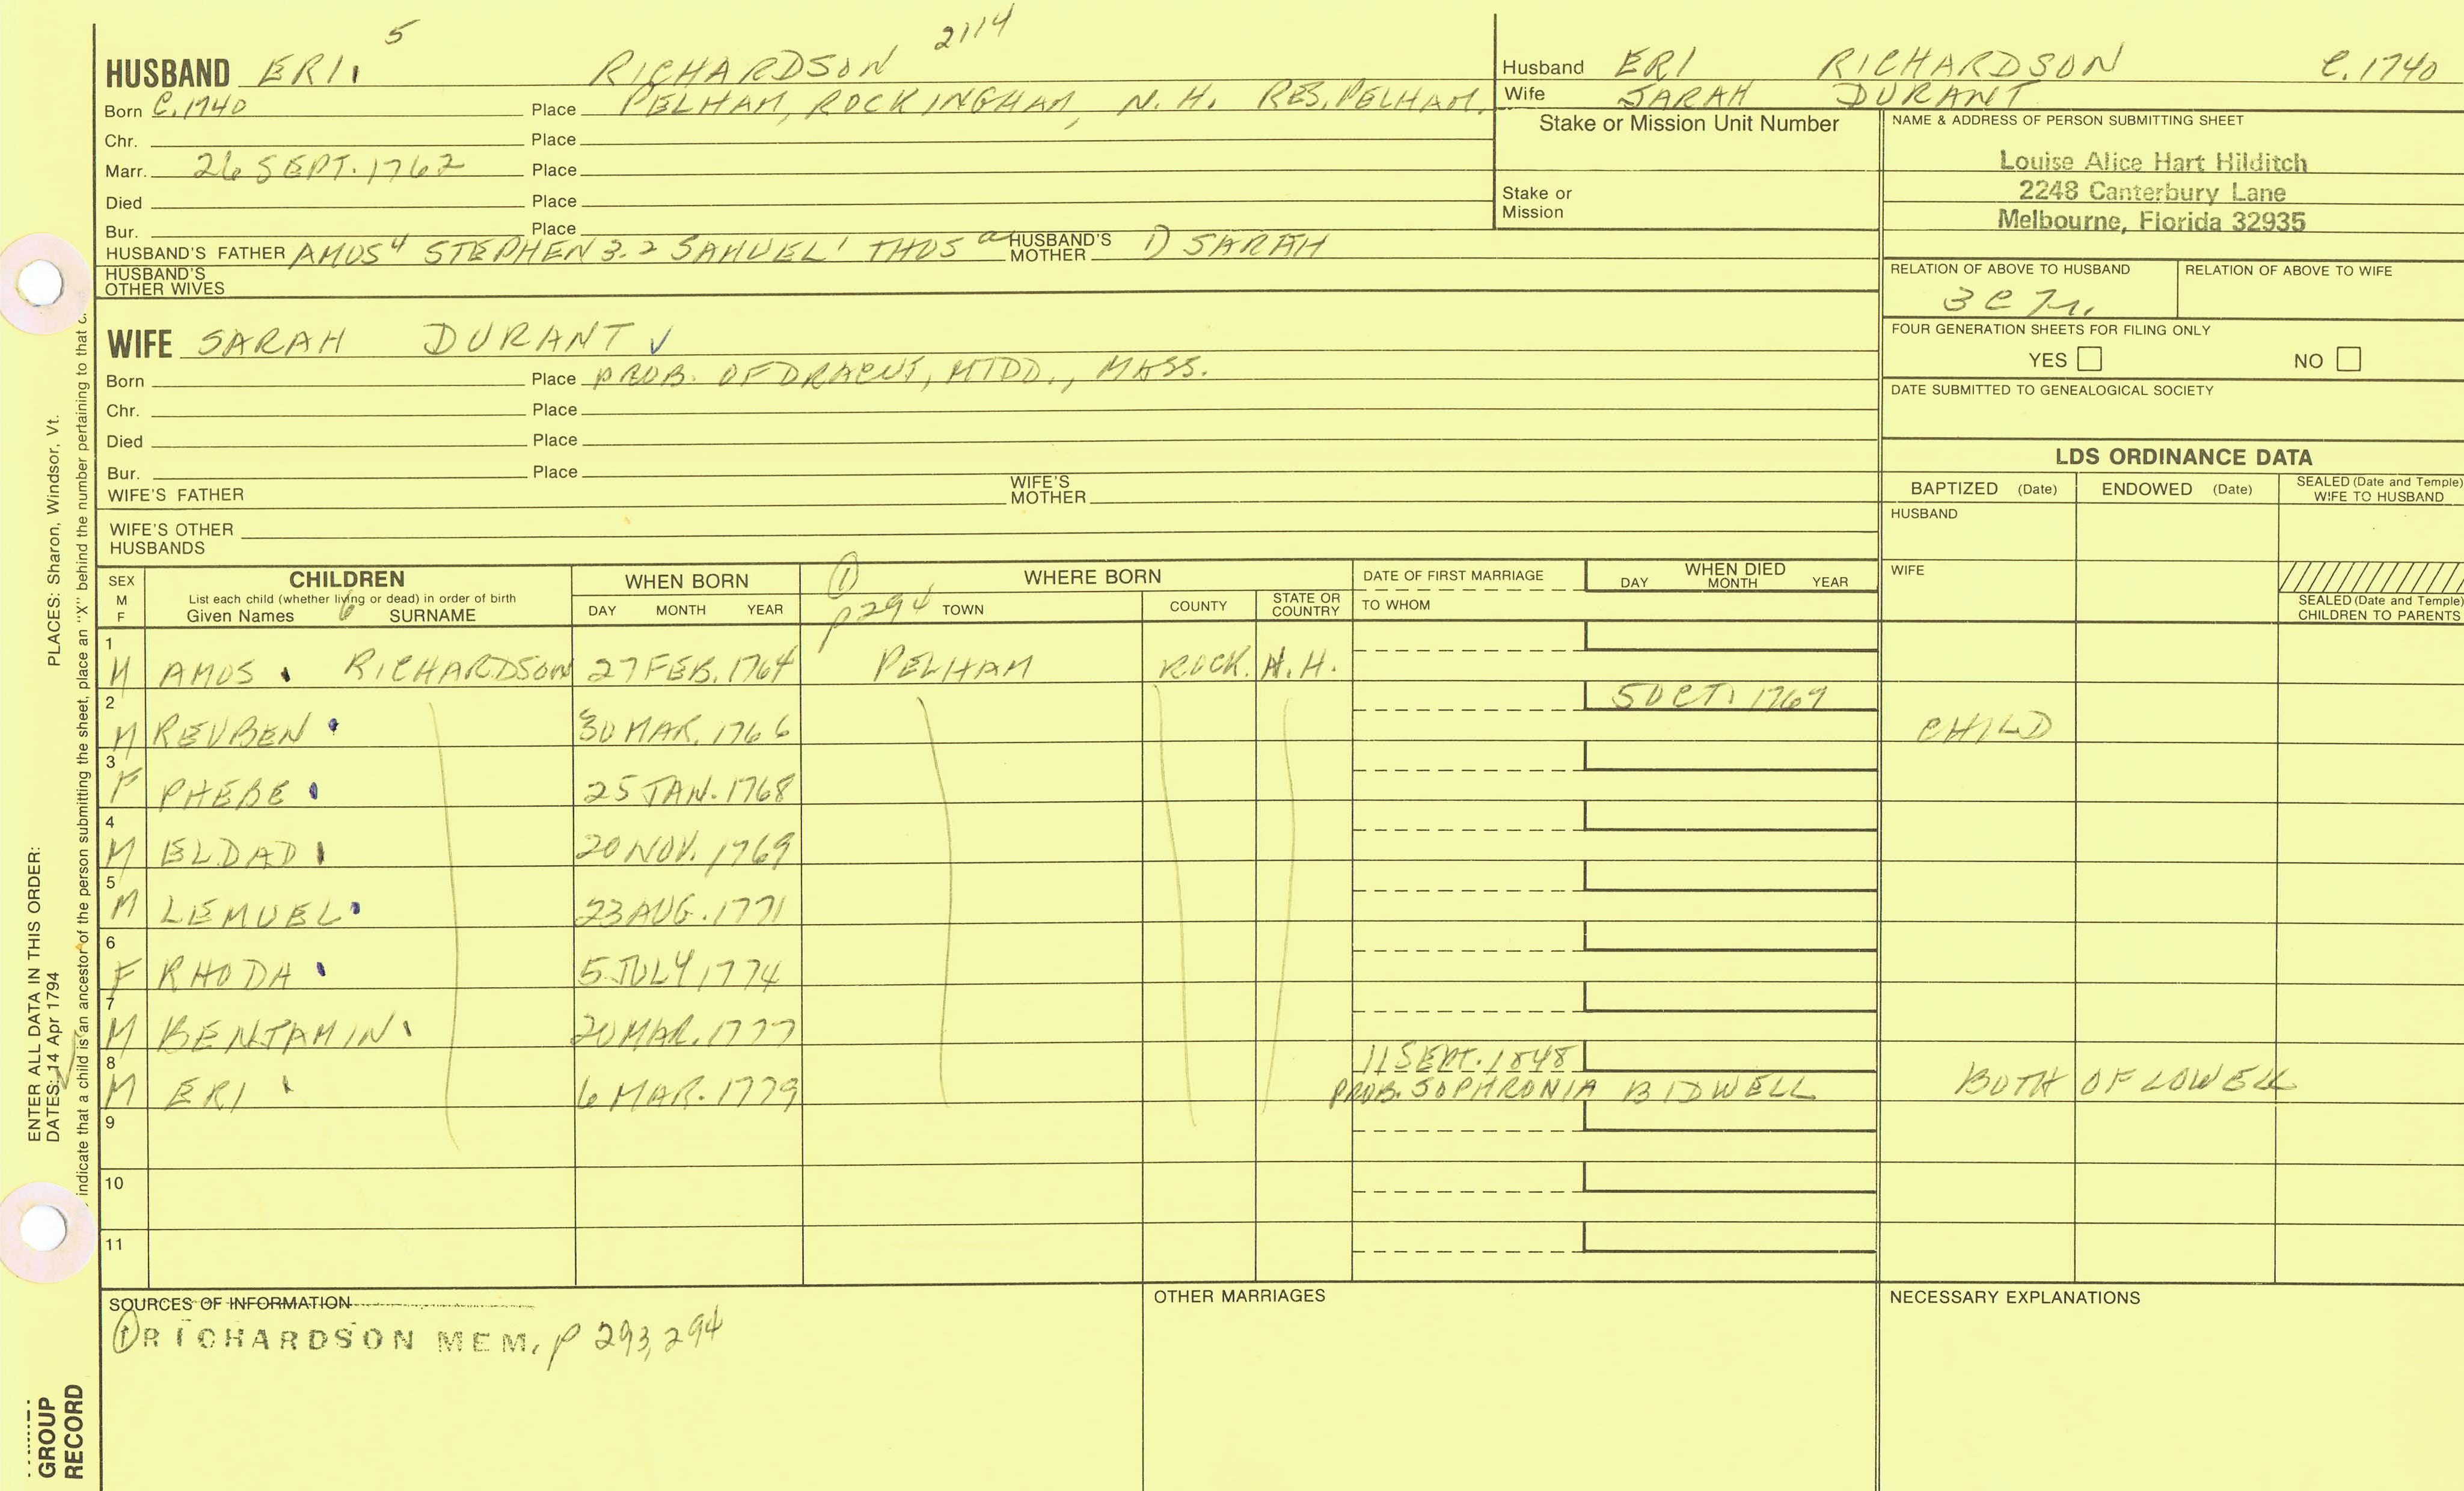 5 2114
HUSBAND ERI RICHARDSON
Born C.1740 Place PELHAM, ROCKINGHAM, N.H. RES. PELHAM.
Chr. Place
Marr. 26 SEPT. 1762 Place
Died Place
Bur. Place
HUSBAND'S FATHER AMOS 4 STEPHEN 3.2 SAMUEL 1 THOS a HUSBAND'S MOTHER 1) SARAH
HUSBAND'S OTHER WIVES
WIFE SARAH DURANT ✓
Born Place PROB. OF DRACUT, MIDD., MASS.
Chr. Place
Died Place
Bur. Place
WIFE'S FATHER WIFE'S MOTHER
WIFE'S OTHER HUSBANDS
Husband ERI RICHARDSON C.1740
Wife SARAH DURANT
Stake or Mission Unit Number
Stake or Mission
NAME & ADDRESS OF PERSON SUBMITTING SHEET
Louise Alice Hart Hilditch
2248 Canterbury Lane
Melbourne, Florida 32935
RELATION OF ABOVE TO HUSBAND RELATION OF ABOVE TO WIFE
FOUR GENERATION SHEETS FOR FILING ONLY
YES NO
DATE SUBMITTED TO GENEALOGICAL SOCIETY
LDS ORDINANCE DATA
BAPTIZED (Date) ENDOWED (Date) SEALED (Date and Temple) WIFE TO HUSBAND
HUSBAND
WIFE
SEALED (Date and Temple) CHILDREN TO PARENTS
SEX M F CHILDREN WHEN BORN ① WHERE BORN DATE OF FIRST MARRIAGE WHEN DIED
List each child (whether living or dead) in order of birth DAY MONTH YEAR
Given Names 6 SURNAME DAY MONTH YEAR p294 TOWN COUNTY STATE OR COUNTRY TO WHOM
1 M AMOS RICHARDSON 27 FEB. 1764 PELHAM ROCK. N.H.
2 M REUBEN 30 MAR. 1766 5 OCT. 1769 CHILD
3 F PHEBE 25 JAN. 1768
4 M ELDAD 20 NOV. 1769
5 M LEMUEL 23 AUG. 1771
6 F RHODA 5 JULY 1774
7 M BENJAMIN 20 MAR. 1777
8 M ERI 6 MAR. 1779 11 SEPT. 1848 PROB. SOPHRONIA BIDWELL BOTH OF LOWELL
9
10
11
SOURCES OF INFORMATION OTHER MARRIAGES NECESSARY EXPLANATIONS
① RICHARDSON MEM. p 293, 294
ENTER ALL DATA IN THIS ORDER:
DATES: 14 Apr 1794 PLACES: Sharon, Windsor, Vt.
indicate that a child is an ancestor of the person submitting the sheet, place an "X" behind the number pertaining to that
GROUP
RECORD